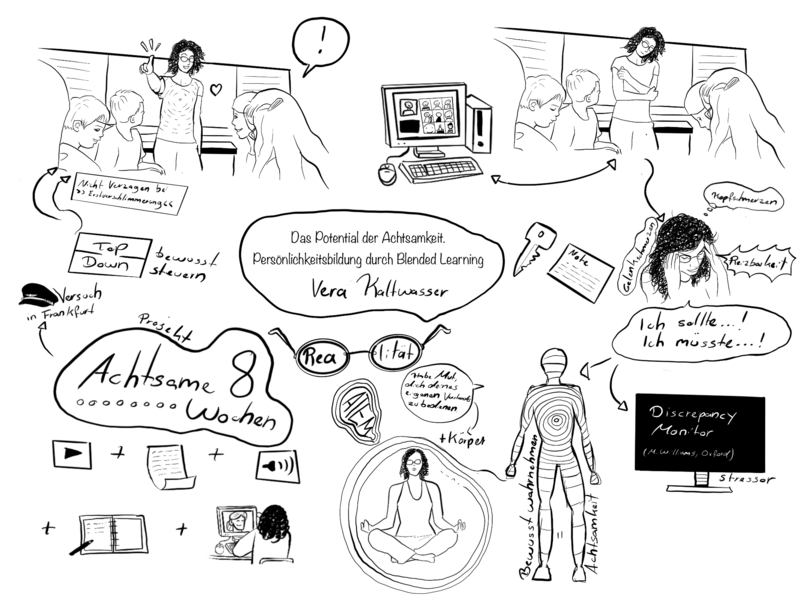 !
Nicht Verzagen bei
"Erstverschlimmerung"
Top
Down
bewusst
steuern
Versuch
in Frankfurt
Projekt
Achtsame 8
Wochen
Das Potential der Achtsamkeit.
Persönlichkeitsbildung durch Blended Learning
Vera Kaltwasser
Rea lität
Habe Mut,
dich deines
eigenen Verstandes
zu bedienen
+Körper
Note
Kopfschmerzen
Gelenkschmerzen
Reizbarkeit
Ich sollte...!
Ich müsste...!
Discrepancy
Monitor
(M. Williams, Oxford)
stressor
Bewusst wahrnehmen
=
Achtsamkeit